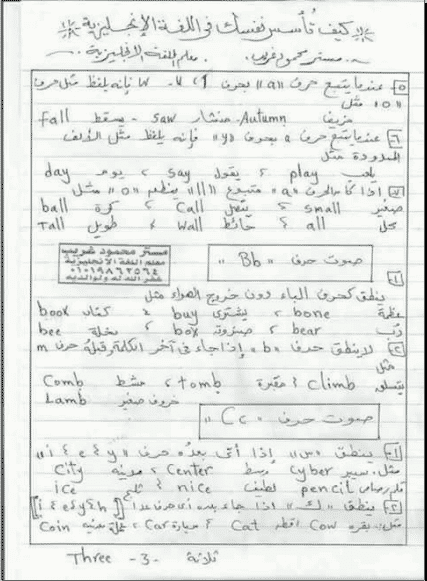 كيف تؤسس نفسك فى اللغة الإنجليزية
مستر محمود غريب معلم اللغة الانجليزية
٥- عندما يتبع حرف "a" بحرف w - u - l فإنه يلفظ مثل حرف
"o" مثل
خريف Autumn - منشار saw - يسقط Fall
٦- عندما يتبع حرف a بحرف "y" فإنه يلفظ مثل الألف
الممدودة مثل
يلعب play ، يقول say ، يوم day
٧- اذا كان الحرف "a" متبوع "ll" ينطق "o" مثل
صغير small ، يتصل Call ، كرة ball
كل all ، حائط Wall ، طويل Tall
مستر محمود غريب
معلم اللغة الانجليزية
٠١٠١٩٨٦٢٥٦٤
غفر الله له ولوالديه
صوت حرف "Bb"
١-
ينطق كحرف الباء دون خروج الهواء مثل
عظمة bone ، يشترى buy ، كتاب book
دب bear ، صندوق box ، نحلة bee
٢- لا ينطق حرف "b" إذا جاء فى آخر الكلمة وقبله حرف m
مثل
يتسلق climb ، مقبرة tomb ، مشط Comb
خروف صغير Lamb
صوت حرف "Cc"
١- ينطق "س" إذا أتى بعده حرف "i ، e ، y"
مثل: سيبر Cyber وسط Center ، مدينه City
قلم رصاص pencil لطيف nice ، ثلج ice
٢- ينطق "ك" اذا جاء بعده أى حرف عدا [i ، e ، y ، h]
مثل: بقره Cow قطه Cat ، سيارة Car ، عملة معدنيه Coin
ثلاثة -3- Three